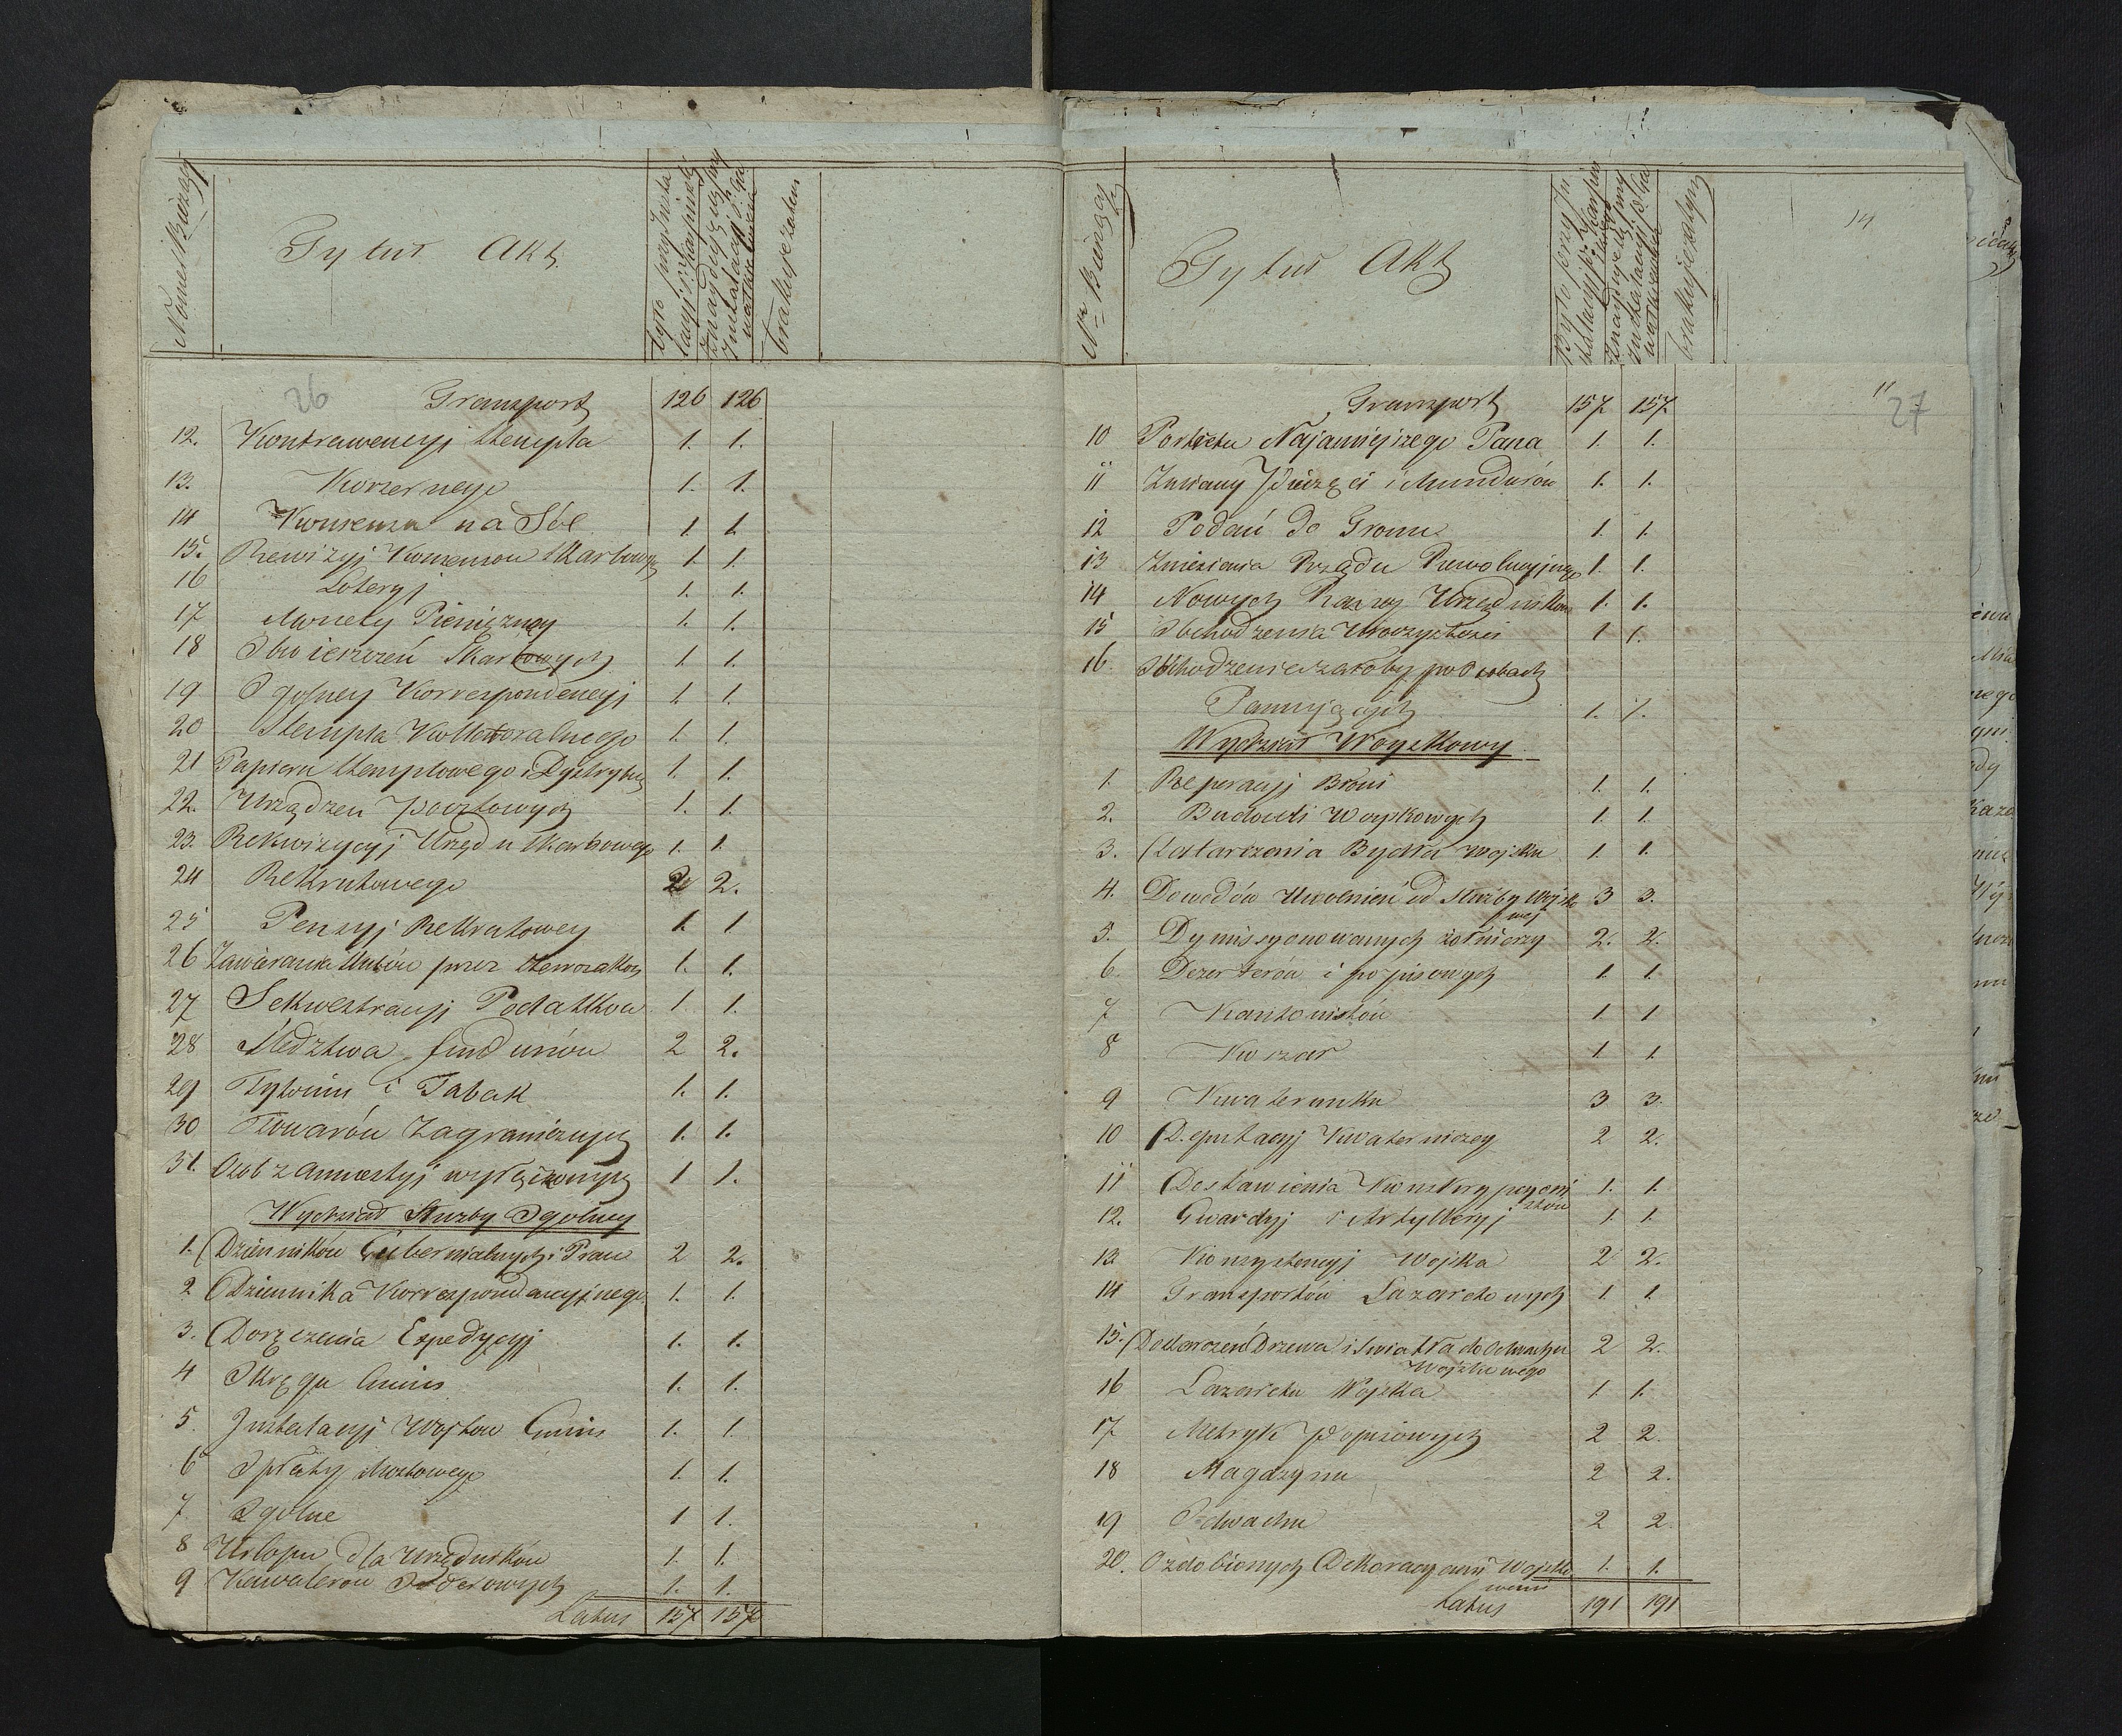 Numer Bieżący
Tytuł Akt.
brakuje zatem
26
Transport 126 126
12. Kontrawencyj Stempla 1. 1.
13. Korzernego 1. 1.
14 Konsensu na Sól 1 1.
15. Rewizyj Konsensow Skarbowych 1 1.
16 Loteryj 1. 1.
17 Monety Pieniężney 1. 1.
18 Obwieszczeń Skarbowych 1. 1.
19 Ogolney Korrespondencyi 1. 1.
20 Stempla Kollateralnego 1 1.
21 Papieru Stemplowego i Dystrybu 1. 1.
22. Urządzeń pocztowych 1. 1.
23. Rekwizycyj Urzędu Skarbowego 1. 1.
24 Rekrutowego 2 2.
25 Pensyj Rekrutowey 1 1
26 Zawierania Ślubów przez 1. 1.
27 Sekwestracyj Podatkow 1 1.
28 Śledztwa funduszów 2 2.
29 Tytoniu i Tabak 1. 1.
30 Towarów Zagranicznych 1. 1.
31. Osob z Amnestyj wyłączonych 1 1.
Wydział Służby Ogolney
1. Dzienników Gubernialnych i Praw 2 2.
2 Dziennika Korrespondencyjnego 1. 1.
3. Doręczenia Expedycyj 1. 1.
4 Okręgu Gmin 1. 1.
5. Instalacyj Wojtow Gmin 1. 1.
6 Opłaty Mostowego 1. 1.
7. Ogolne 1 1.
8 Urlopu dla Urzędników 1. 1.
9 Kawalerow Orderowych 1. 1.
Latus 157 157
Nr Bieżący
Tytuł Akt
brakuje zatym
14
11
27
Transport 157 157
10 Portretu Najasniejszego Pana 1. 1.
11 Zmiany Pieczęci i Mundurów 1. 1.
12 Podań do Tronu 1. 1.
13 Zniesienia Rządu Rewolucyjnego 1. 1.
14 Nowych Urzędników 1. 1.
15 Obchodzenia Uroczystosci 1 1.
16. Obchodzenie żałoby po osobach
Panujących 1. 1.
Wydział Woyskowy
1. Reperacyj Broni 1. 1.
2. Budowli Woyskowych 1. 1.
3. Dostarczenia Bydła Wojsku 1. 1.
4. Dowodów Uwolnień od Służby Wojsko 3 3.
wej
5. Dymissyonowanych żołnierzy 2. 2.
6. Dezerterów i popisowych 1. 1.
7 Kantonistów 1. 1
8 Koszar 1. 1.
9 Kwaterunku 3 3.
10 Deputacyj Kwaterniczey 2 2.
11 Dostawienia Konskrypcyoni 1. 1.
stów
12. Gwardyj i Artylleryj 1. 1.
13 Konsystencyj Wojska 2 2.
14 Transportów Lazaretowych 1. 1.
15. Dostarczeń Drzewa i Swiatła do Odwachu 2 2.
Wojskowego
16 Lazaretu Wojska 1. 1.
17 Metryk Popisowych 2 2.
18 Magazynu 2 2.
19 Odwachu 2 2
20. Ozdobionych Dekoracyami Wojsko 1. 1.
wemi
Latus 191 191